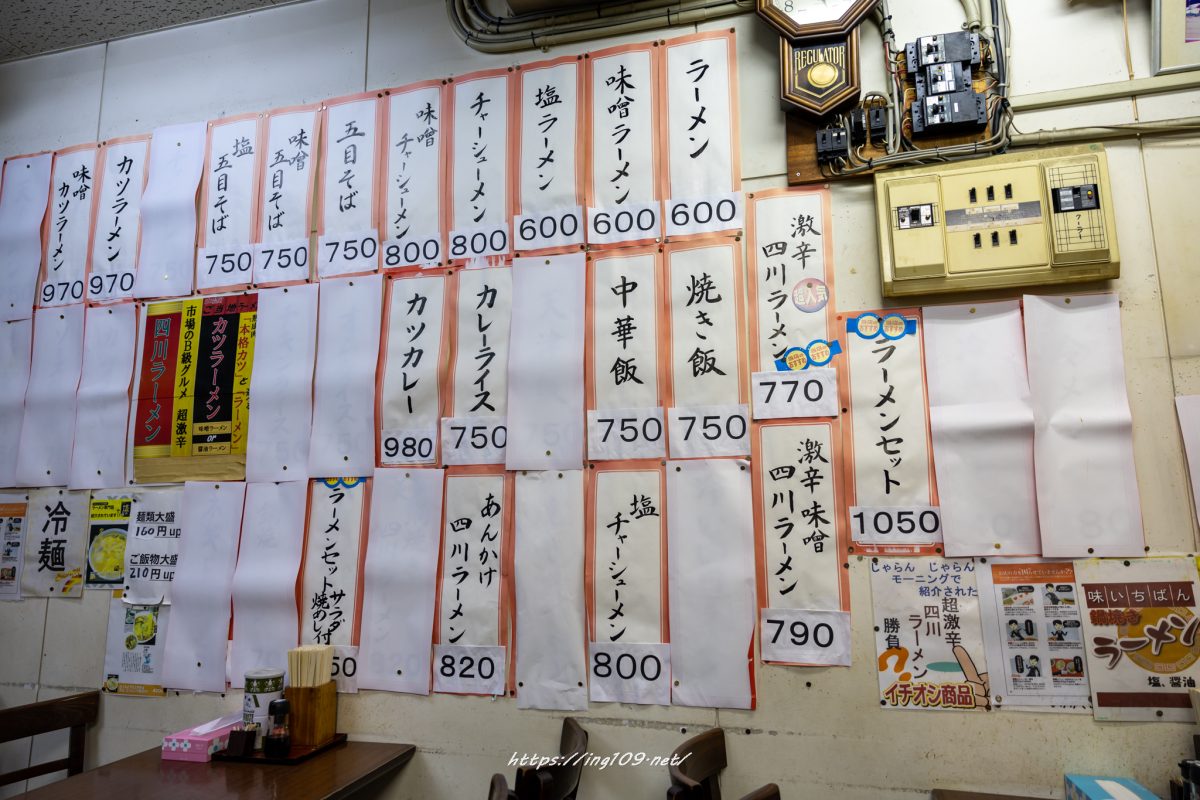 ラーメン
600
味噌ラーメン
600
塩ラーメン
600
チャーシューメン
800
味噌
チャーシューメン
800
五目そば
750
味噌
五目そば
750
塩
五目そば
750
カツラーメン
970
味噌
カツラーメン
970
REGULATOR
8
激辛
四川ラーメン
超人気
770
焼き飯
750
中華飯
750
カレーライス
750
カツカレー
980
ラーメンセット
1050
「本格カツ」と「ラーメン
ご当地ラーメン
カツラーメン
味噌ラーメン
or
醤油ラーメン
市場のB級グルメ 超激辛
四川ラーメン
激辛味噌
四川ラーメン
790
塩
チャーシューメン
800
あんかけ
四川ラーメン
820
ラーメンセットサラダ
焼めし付
50
麺類大盛
160円up
ご飯物大盛
210円up
冷麺
じゃらん じゃらん
モーニングで
紹介された
超激辛
四川
ラーメン
勝負
?
イチオシ商品
味いちばん
鍋焼き
ラーメン
塩、醤油
https://ing109.net/